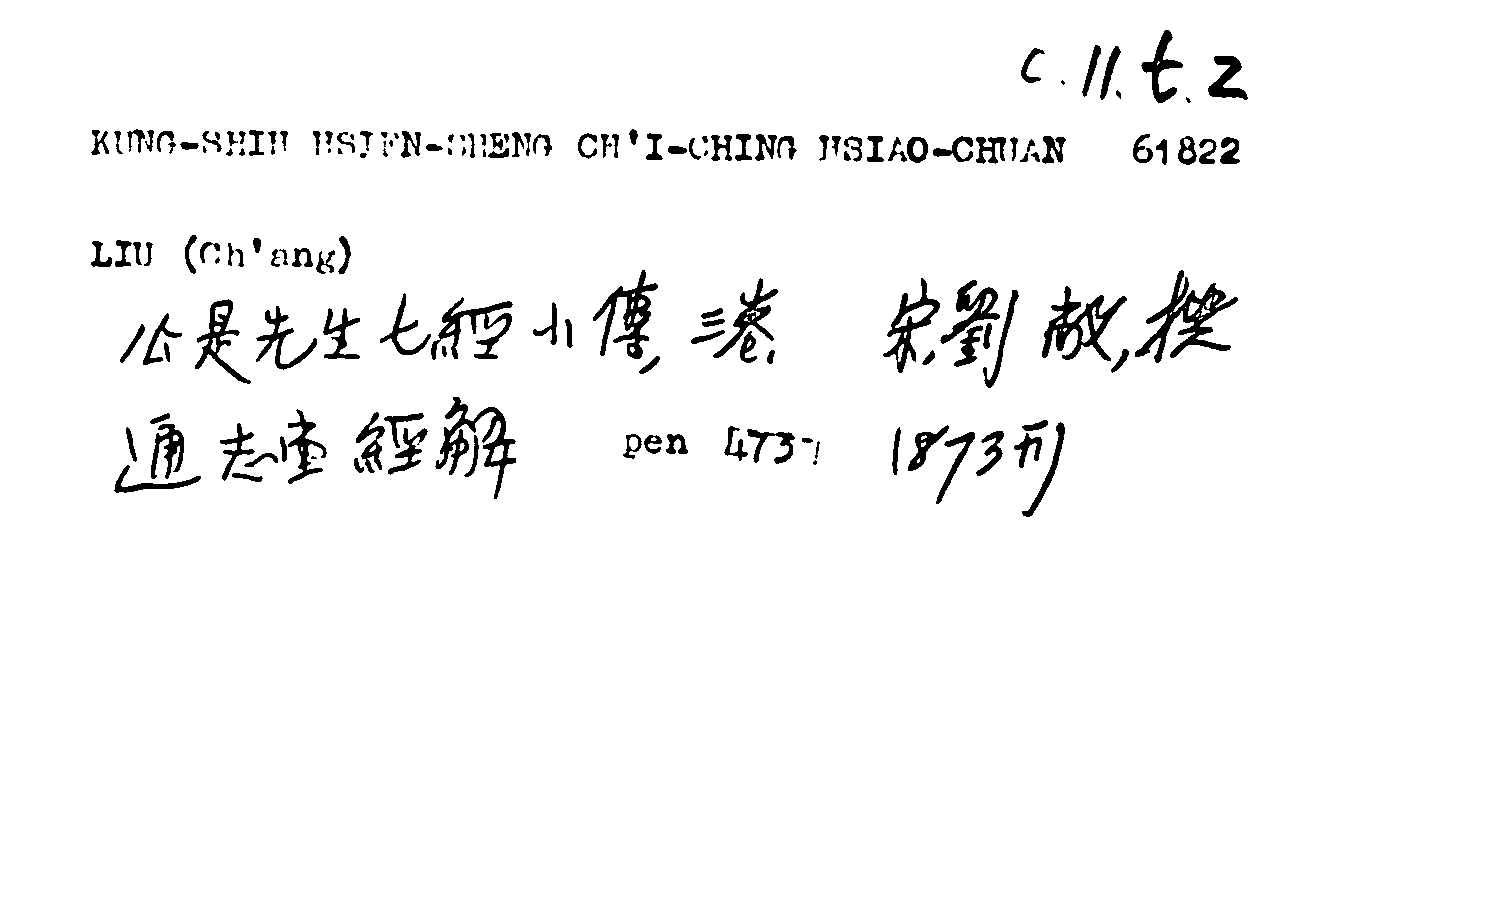 C.11.t.2
KUNG-SHIH HSIEN-SHENG CH'I-CHING HSIAO-CHUAN 61822
LIU (Ch'ang)
公是先生七經小傳, 三卷. 宋, 劉敞, 撰
通志堂經解 pen 473- 1873刊